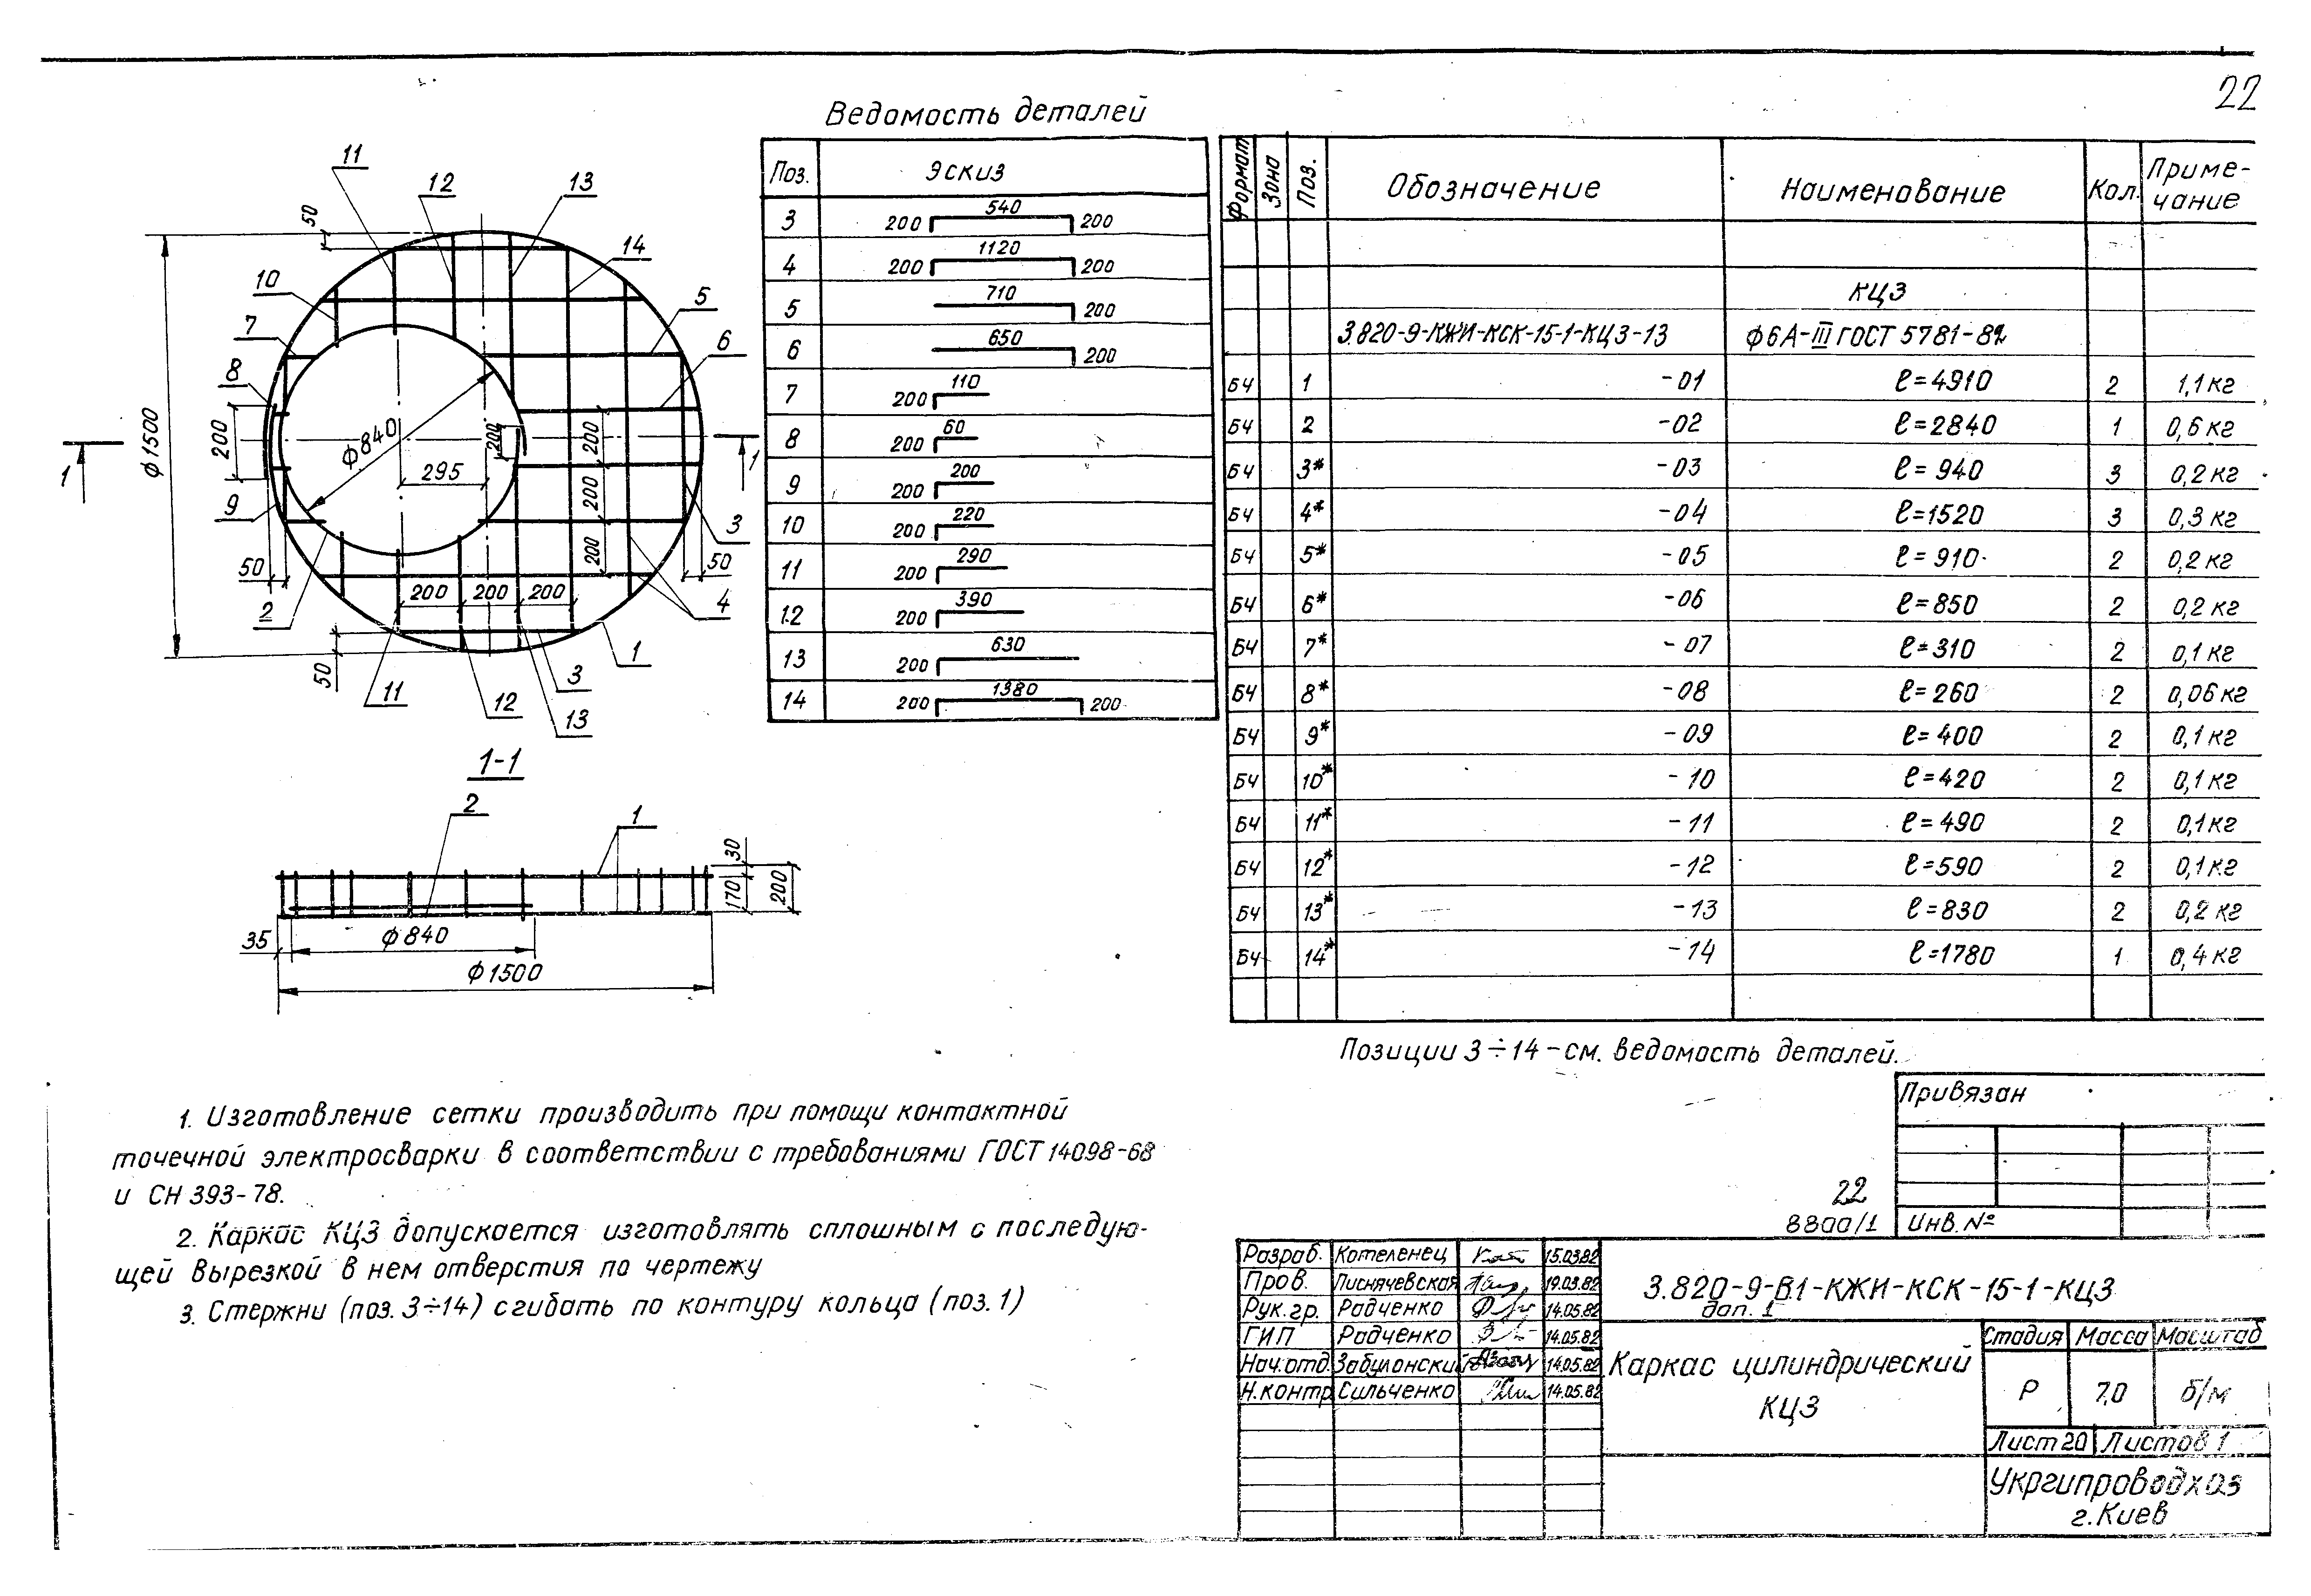 22
Ведомость деталей
Поз. Эскиз
3 200 540 200
4 200 1120 200
5 710 200
6 650 200
7 200 110
8 200 60
9 200 200
10 200 220
11 200 290
12 200 390
13 200 630
14 200 1380 200
11
12
13
14
50
10
7
5
6
8
200
ф1500
1
ф840
295
200
200
200
200
1
9
50
2
3
50
200 200 200
4
50
1
3
11
12
13
1-1
2
1
30
170
200
35
ф840
ф1500
Формат Зона Поз. Обозначение Наименование Кол. Приме-
чание
КЦЗ
3.820-9-КЖИ-КСК-15-1-КЦЗ-13 ф6А-III ГОСТ 5781-82
БЧ 1 -01 ℓ=4910 2 1,1кг
БЧ 2 -02 ℓ=2840 1 0,6кг
БЧ 3* -03 ℓ=940 3 0,2кг
БЧ 4* -04 ℓ=1520 3 0,3кг
БЧ 5* -05 ℓ=910 2 0,2кг
БЧ 6* -06 ℓ=850 2 0,2кг
БЧ 7* -07 ℓ=310 2 0,1кг
БЧ 8* -08 ℓ=260 2 0,06кг
БЧ 9* -09 ℓ=400 2 0,1кг
БЧ 10* -10 ℓ=420 2 0,1кг
БЧ 11* -11 ℓ=490 2 0,1кг
БЧ 12* -12 ℓ=590 2 0,1кг
БЧ 13* -13 ℓ=830 2 0,2кг
БЧ 14* -14 ℓ=1780 1 0,4кг
Позиции 3÷14-см. ведомость деталей.
1. Изготовление сетки производить при помощи контактной
точечной электросварки в соответствии с требованиями ГОСТ 14098-68
и СН 393-78.
2. Каркас КЦЗ допускается изготовлять сплошным с последую-
щей вырезкой в нем отверстия по чертежу
3. Стержни (поз. 3÷14) сгибать по контуру кольца (поз. 1)
Привязан
Инв. №
22
8800/1
Разраб. Котеленец 15.03.82
Пров. Лиснячевская 19.03.82
Рук.гр. Радченко 14.05.82
ГИП Радченко 14.05.82
Нач.отд. Забулонский 14.05.82
Н.контр Сильченко 14.05.82
3.820-9-В1-КЖИ-КСК-15-1-КЦЗ
доп. 1
Каркас цилиндрический
КЦЗ
Стадия Масса Масштаб
Р 7,0 б/м
Лист 20 Листов 1
Укргипроводхоз
г.Киев